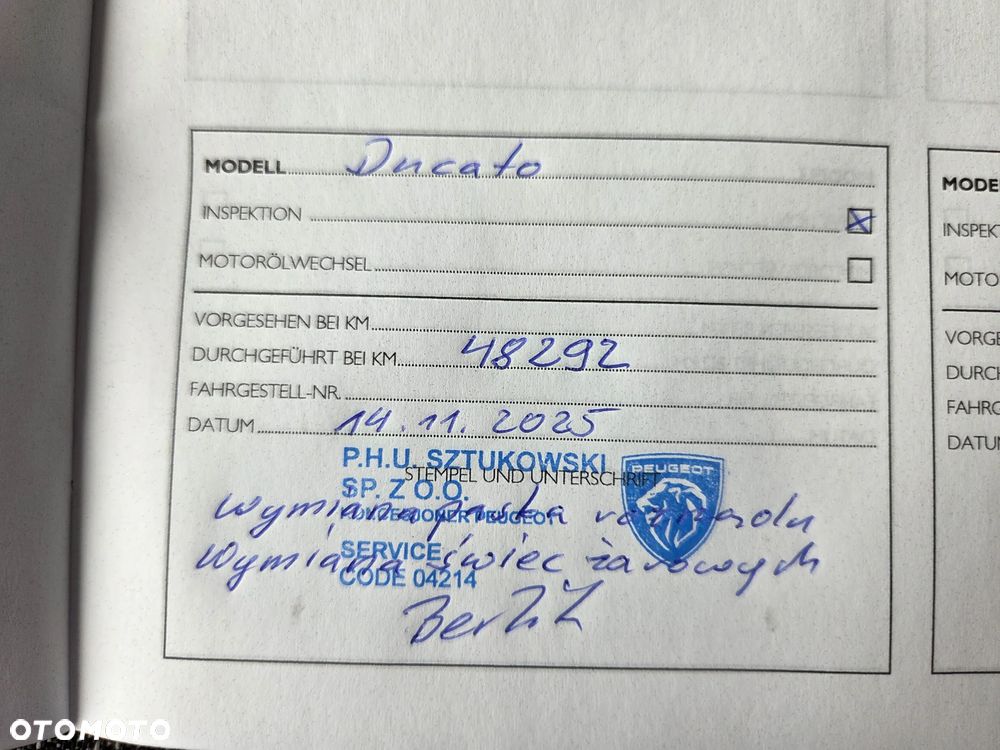 MODELL Ducato
INSPEKTION
MOTORÖLWECHSEL
VORGESEHEN BEI KM
DURCHGEFÜHRT BEI KM 48292
FAHRGESTELL-NR.
DATUM 14.11.2025
P.H.U. SZTUKOWSKI
STEMPEL UND UNTERSCHRIFT
SP. Z O.O.
PEUGEOT
KONCESJONER PEUGEOT
Wymiana paska rozrządu
SERVICE
Wymiana świec żarowych
CODE 04214
MODE
INSPEKT
MOTO
VORGE
DURCH
FAHRG
DATU
OTOMOTO